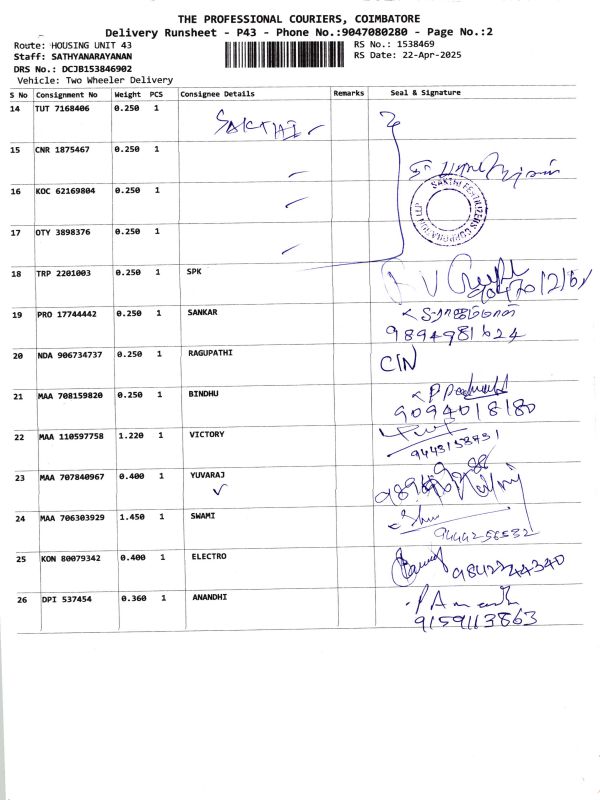 THE PROFESSIONAL COURIERS, COIMBATORE
Delivery Runsheet - P43 - Phone No.:9047080280 - Page No.:2
Route: HOUSING UNIT 43 RS No.: 1538469
Staff: SATHYANARAYANAN RS Date: 22-Apr-2025
DRS No.: DCJB153846902
Vehicle: Two Wheeler Delivery
S No Consignment No Weight PCS Consignee Details Remarks Seal & Signature
14 TUT 7168406 0.250 1 SAKTHI
15 CNR 1875467 0.250 1
16 KOC 62169804 0.250 1
SAKTHI FERTILIZERS CORPORATION LLP
17 OTY 3898376 0.250 1
18 TRP 2201003 0.250 1 SPK
19 PRO 17744442 0.250 1 SANKAR
9894981624
20 NDA 906734737 0.250 1 RAGUPATHI CIN
21 MAA 708159820 0.250 1 BINDHU
9094018180
22 MAA 110597758 1.220 1 VICTORY
9443158731
23 MAA 707840967 0.400 1 YUVARAJ
24 MAA 706303929 1.450 1 SWAMI
9444256532
25 KON 80079342 0.400 1 ELECTRO
9842244340
26 DPI 537454 0.360 1 ANANDHI
9159113863